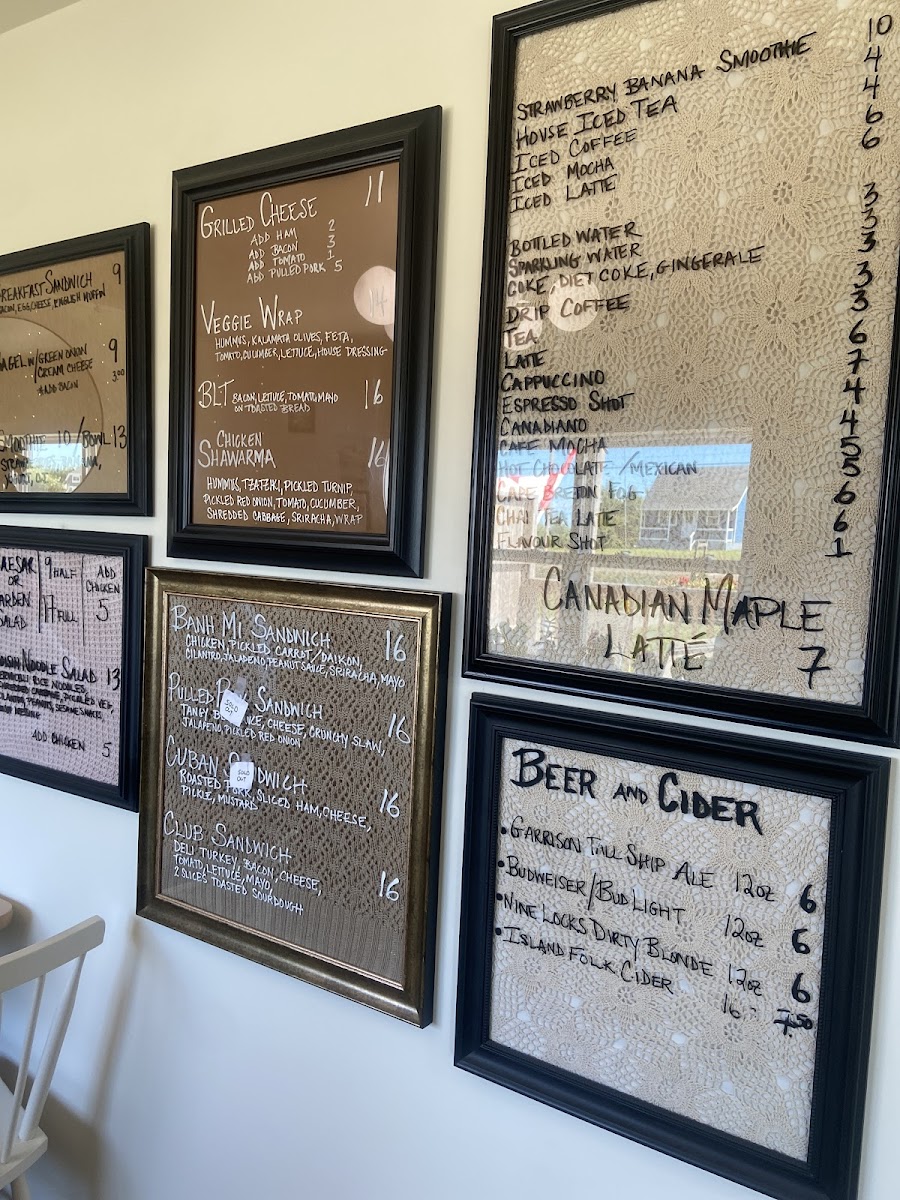 BREAKFAST SANDWICH 9
BACON, EGG, CHEESE, ENGLISH MUFFIN
BAGEL W/ GREEN ONION 9
CREAM CHEESE
ADD BACON 3.00
SMOOTHIE 10 / BOWL 13
YOGURT, OJ
CAESAR 9 HALF ADD
OR CHICKEN
GARDEN 17 FULL 5
SALAD
NOODLE SALAD 13
ADD CHICKEN 5
GRILLED CHEESE 11
ADD HAM 2
ADD BACON 3
ADD TOMATO 1
ADD PULLED PORK 5
VEGGIE WRAP 14
HUMMUS, KALAMATA OLIVES, FETA,
TOMATO, CUCUMBER, LETTUCE, HOUSE DRESSING
BLT BACON, LETTUCE, TOMATO, MAYO 16
ON TOASTED BREAD
CHICKEN
SHAWARMA 16
HUMMUS, TZATZIKI, PICKLED TURNIP,
PICKLED RED ONION, TOMATO, CUCUMBER,
SHREDDED CABBAGE, SRIRACHA, WRAP
BANH MI SANDWICH 16
CHICKEN, PICKLED CARROT/DAIKON,
CILANTRO, JALAPENO, PEANUT SAUCE, SRIRACHA, MAYO
PULLED SANDWICH 16
SOLD OUT
TANGY CHEESE, CRUNCHY SLAW,
JALAPENO, PICKLED RED ONION
CUBAN SANDWICH 16
SOLD OUT
ROASTED PORK, SLICED HAM, CHEESE,
PICKLE, MUSTARD
CLUB SANDWICH 16
DELI TURKEY, BACON, CHEESE,
TOMATO, LETTUCE, MAYO,
2 SLICES TOASTED SOURDOUGH
STRAWBERRY BANANA SMOOTHIE 10
HOUSE ICED TEA 4
ICED COFFEE 4
ICED MOCHA 6
ICED LATTE 6
BOTTLED WATER 3
SPARKLING WATER 3
COKE, DIET COKE, GINGERALE 3
DRIP COFFEE 3
TEA 3
LATE 6
CAPPUCCINO 7
ESPRESSO SHOT 4
CANADIANO 4
CAFE MOCHA 5
HOT CHOCOLATE/MEXICAN 5
CAPE BRETON FOG 6
CHAI TEA LATE 6
FLAVOUR SHOT 1
CANADIAN MAPLE
LATTÉ 7
BEER AND CIDER
• GARRISON TALL SHIP ALE 12oz 6
• BUDWEISER/BUD LIGHT 12oz 6
• NINE LOCKS DIRTY BLONDE 12oz 6
• ISLAND FOLK CIDER 16 7.50